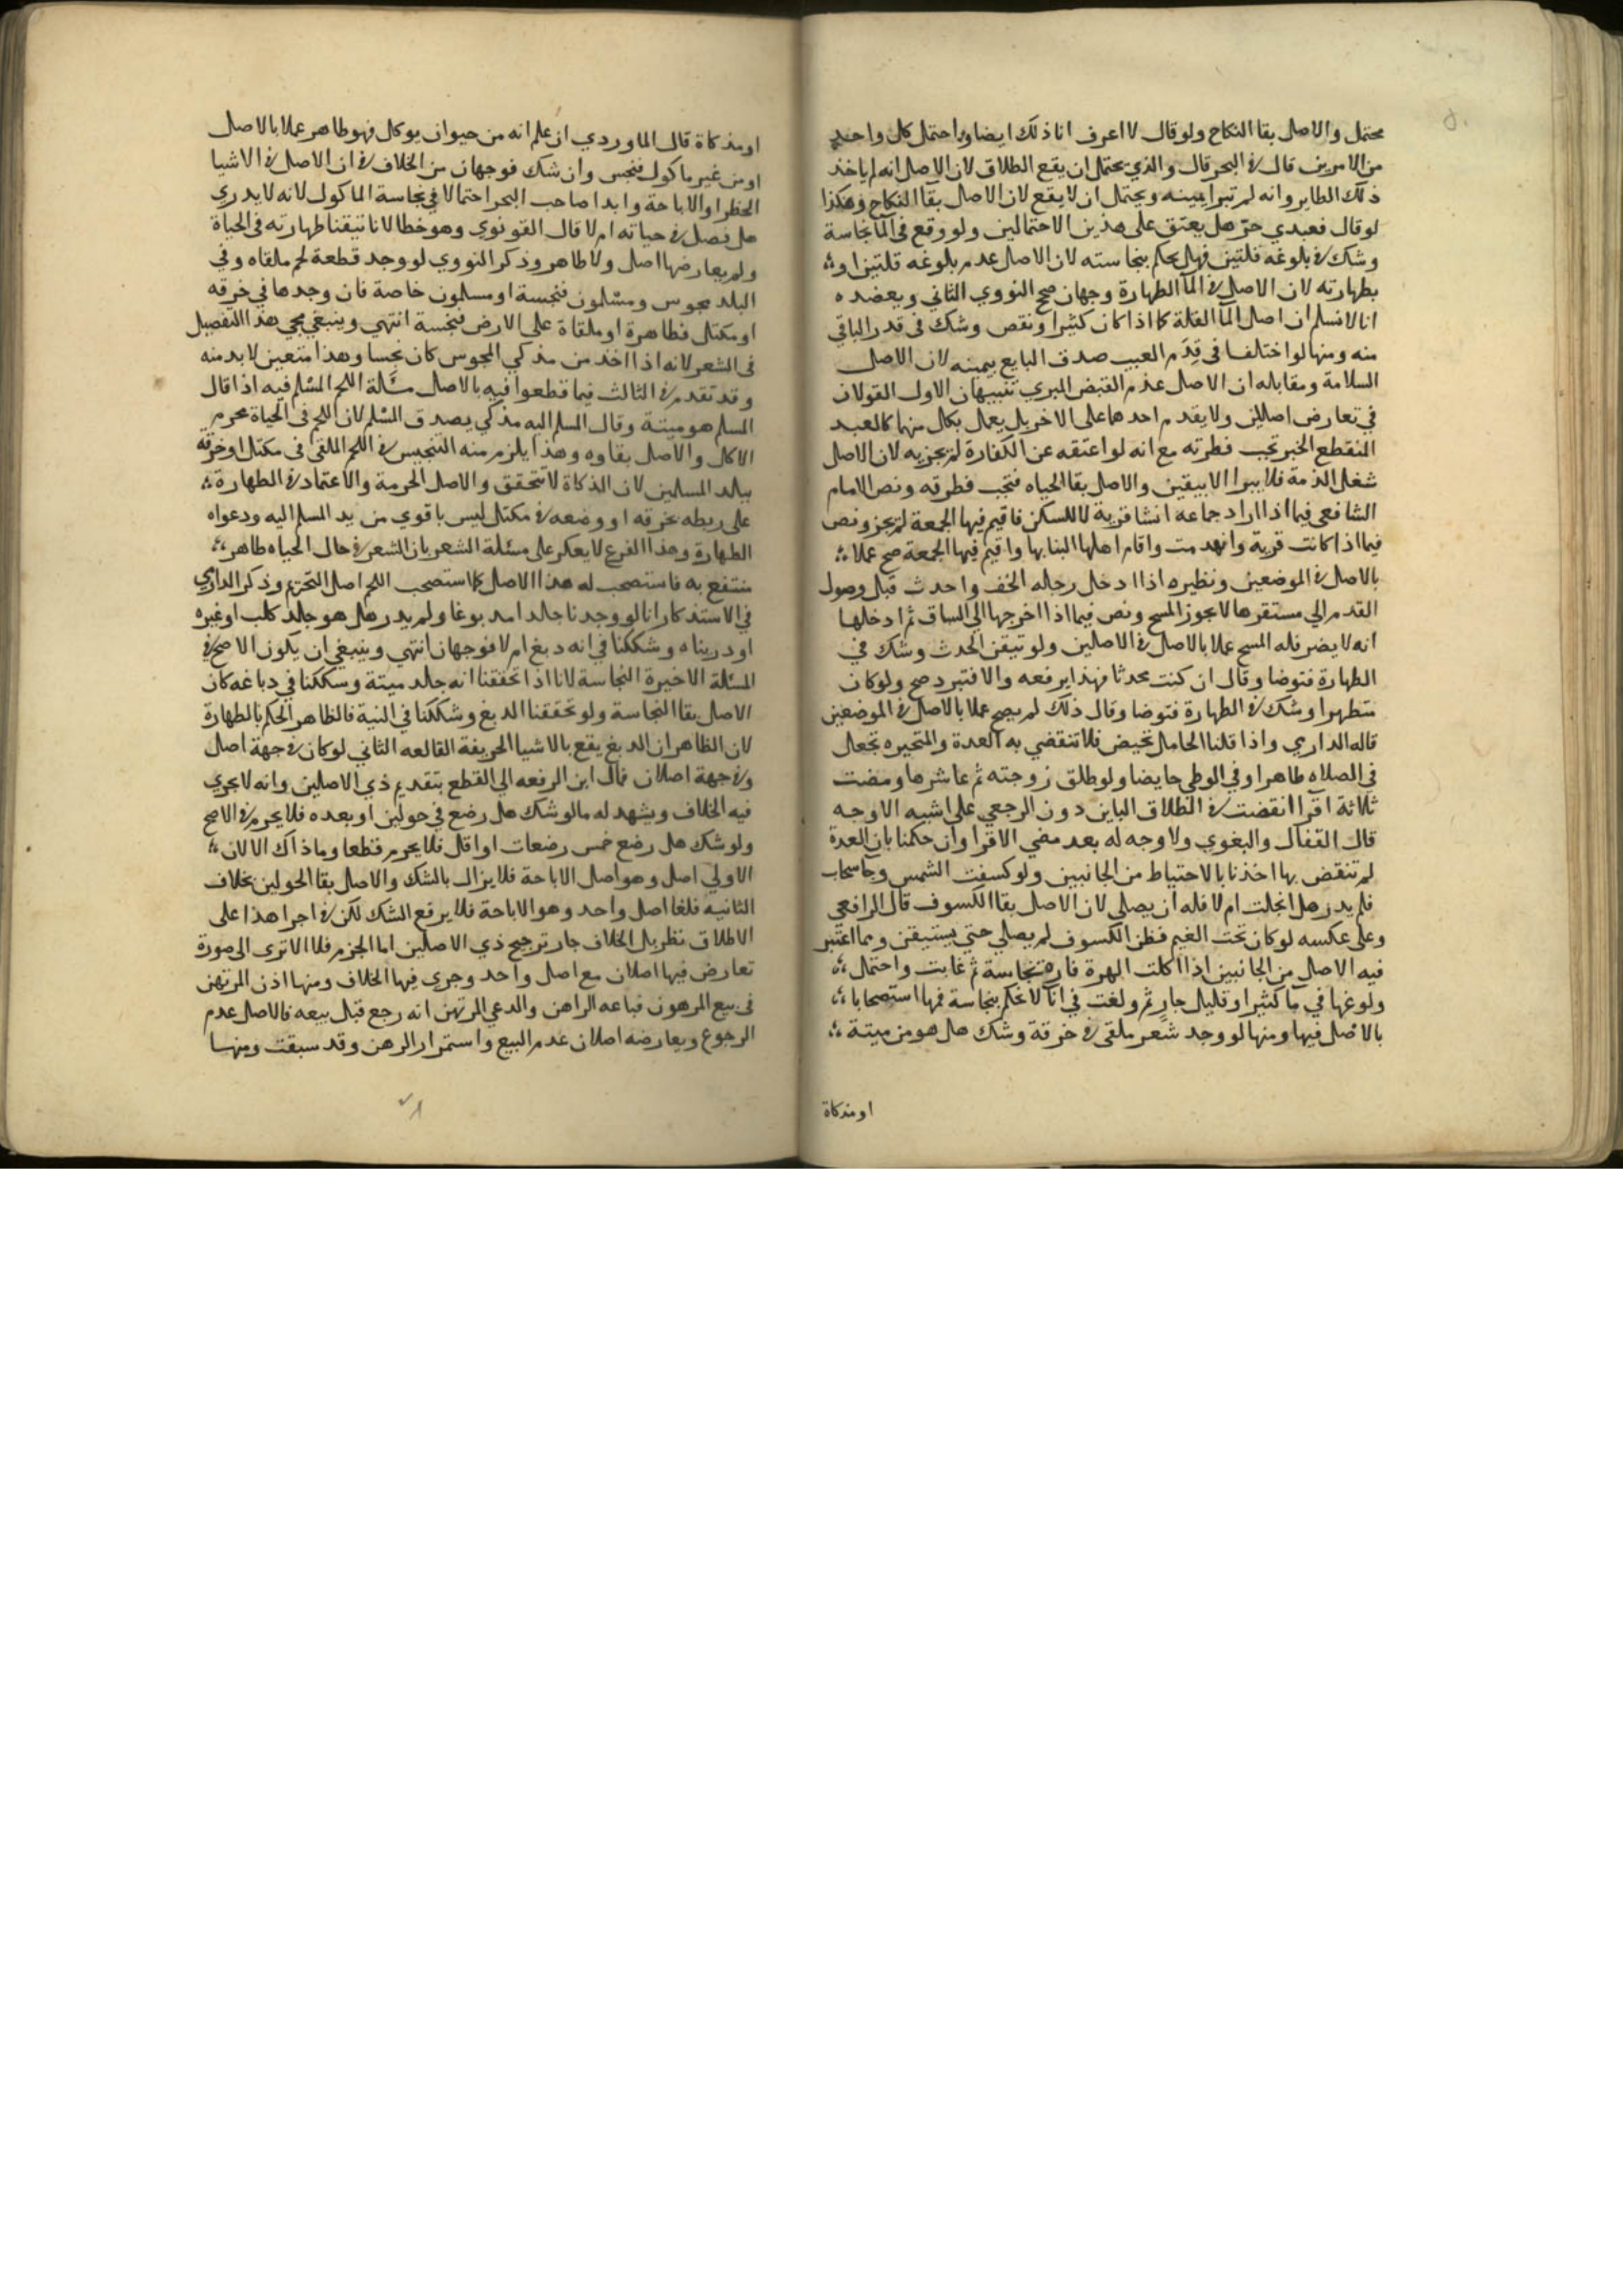 محتمل والاصل بقا النكاح ولو قال لا اعرف انا ذلك ايضا واحتمل كل واحد
من الامرين قال في البحر قال والذي يحتمل ان يقع الطلاق لان الاصل انه لم ياخذ
ذلك الطاير وانه لم تبرا يمينه ويحتمل ان لا يقع لان الاصل بقا النكاح وهكذا
لو قال فعبدي حر هل يعتق على هذين الاحتمالين ولو وقع في المآ نجاسة
وشك في بلوغه قلتين فهل يحكم بنجاسته لان الاصل عدم بلوغه قلتين او
بطهارته لان الاصل في المآ الطهارة وجهان صح النووي الثاني ويعضده
انا لا نسلم ان اصل المآ القلة كما اذا كان كثيرا ونقص وشك في قدر الباقي
منه ومنها لو اختلفا في قِدَم العيب صدق البايع بيمينه لان الاصل
السلامة ومقابله ان الاصل عدم القبض المبري تنبيهان الاول القولان
في تعارض اصلين ولا يقدم احدهما على الاخر بل يعمل بكل منهما كالعبد
المنقطع الخبر تجب فطرته مع انه لو اعتقه عن الكفارة لم يجزيه لان الاصل
شغل الذمة فلا يبرا الا بيقين والاصل بقا الحياه فتجب فطرته ونص الامام
الشافعي فيما اذا اراد جماعه انشا قرية لا للسكن فاقيم فيها الجمعة لم يجز ونص
فيما اذا كانت قرية وانهدمت واقام اهلها البنا بها واقيم فيها الجمعة صح عملا
بالاصل في الموضعين ونظيره اذا ادخل رجله الخف واحدث قبل وصول
القدم الي مستقرها لا يجوز المسح ونص فيما اذا اخرجها الي الساق ثم ادخلها
انه لا يضر فله المسح عملا بالاصل في الاصلين ولو تيقن الحدث وشك في
الطهارة فتوضا وقال ان كنت محدثا فهذا يرفعه والا فتبرد صح ولو كان
متطهرا وشك في الطهارة فتوضا وقال ذلك لم يصح عملا بالاصل في الموضعين
قاله الداري واذا قلنا الحامل تحيض فلا تنقضي به العدة والمتحيره تجعل
في الصلاه طاهرا وفي الوطي حايضا ولو طلق زوجته ثم عاشرها ومضت
ثلاثة اقرا انقضت في الطلاق الباين دون الرجعي على اشبه الاوجه
قال القفال والبغوي ولا وجه له بعد مضي الاقرا وان حكمنا بان العدة
لم تنقض بها اخذنا بالاحتياط من الجانبين ولو كسفت الشمس وجا سحاب
فلم يدر هل انجلت ام لا فله ان يصلي لان الاصل بقا الكسوف قال الرافعي
وعلى عكسه لو كان تحت الغيم فظن الكسوف لم يصلي حتي يستيقن ومما اعتبر
فيه الاصل من الجانبين اذا اكلت الهرة فارة نجاسة ثم غابت واحتمل
ولوغها في مآ كثير او قليل جارٍ ثم ولغت في انآ لا نحكم بنجاسة فمها استصحابا
بالاصل فيها ومنها لو وجد شعر ملقى في خرقة وشك هل هو من ميتة
او مذكاة
او مذكاة قال الماوردي ان علم انه من حيوان يوكل فهو طاهر عملا بالاصل
او من غير ماكول فنجس وان شك فوجهان من الخلاف في ان الاصل في الاشيا
الحظر او الاباحة وابدا صاحب البحر احتمالا في نجاسة الماكول لانه لا يدري
هل فصل في حياته ام لا قال القونوي وهو خطا لانا تيقنا طهارته في الحياة
ولم يعارضها اصل ولا طاهر وذكر النووي لو وجد قطعة لحم ملقاه وفي
البلد مجوس ومسلمون فنجسة او مسلمون خاصة فان وجدها في خرقه
او مكتل فطاهرة او ملقاة على الارض فنجسة انتهي وينبغي مجي هذا التفصيل
في الشعر لانه اذا اخذ من مذكي المجوس كان نجسا وهذا متعين لابد منه
وقد تقدم في الثالث فيما قطعوا فيه بالاصل مسَلة اللحم المسلم فيه اذا قال
المسلم هو ميتة وقال المسلم اليه مذكي يصدق المسلم لان اللحم في الحياة محرم
الاكل والاصل بقاوه وهذا يلزم منه التنجيس في اللحم الملقى في مكتل او خرقه
ببلد المسلمين لان الذكاة لا تتحقق والاصل الحرمة والاعتماد في الطهارة
على ربطه بخرقه او وضعه في مكتل ليس باقوي من يد المسلم اليه ودعواه
الطهارة وهذا الفرع لا يعكر على مسئلة الشعر بان الشعر في حال الحياه طاهر
منتفع به فاستصحب له هذا الاصل كما استصحب اللحم اصل التحريم وذكر الداري
في الاستذكار انا لو وجدنا جلدا مدبوغا ولم يدر هل هو جلد كلب او غيره
او درينا ه وشككنا في انه دبغ ام لا فوجهان انتهي وينبغي ان يكون الاصح في
المسئلة الاخيرة النجاسة لانا اذا تحققنا انه جلد ميتة وسككنا في دباغه كان
الاصل بقا النجاسة ولو تحققنا الدبغ وشككنا في النية فالظاهر الحكم بالطهارة
لان الظاهر ان الدبغ يقع بالاشيا الحريفة القالعه الثاني لو كان في جهة اصل
وفي جهة اصلان مال ابن الرفعه الي القطع بتقديم ذي الاصلين وانه لا يجري
فيه الخلاف ويشهد له ما لو شك هل رضع في حولين او بعده فلا يحرم في الاصح
ولو شك هل رضع خمس رضعات او اقل فلا يحرم قطعا وما ذاك الا لان
الاولي اصل وهو اصل الاباحة فلا يزال بالشك والاصل بقا الحولين بخلاف
الثانيه فلغا اصل واحد وهو الاباحة فلا يرفع الشك لكن في اجرا هذا على
الاطلاق نظر بل الخلاف جار ترجيح ذي الاصلين اما الجزم فلا الا ترى الى صورة
تعارض فيها اصلان مع اصل واحد وجرى فيها الخلاف ومنها اذن المرتهن
في بيع المرهون فباعه الراهن والدعي المرتهن انه رجع قبل بيعه فالاصل عدم
الرجوع ويعارضه اصلان عدم البيع واستمرار الرهن وقد سبقت ومنها